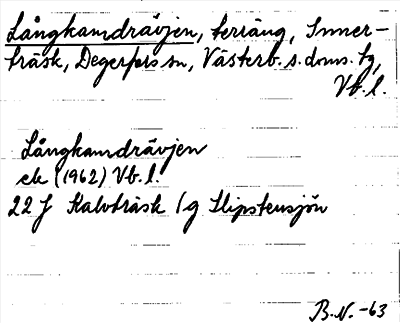 Långkamdrävjen, terräng, Inner-
träsk, Degerfors sn, Västerb. s. doms. tg,
Vb. l.
Långkamdrävjen
ek (1962) Vb. l.
22 J Kalvträsk 1 g Slipstensjön
B.N. -63